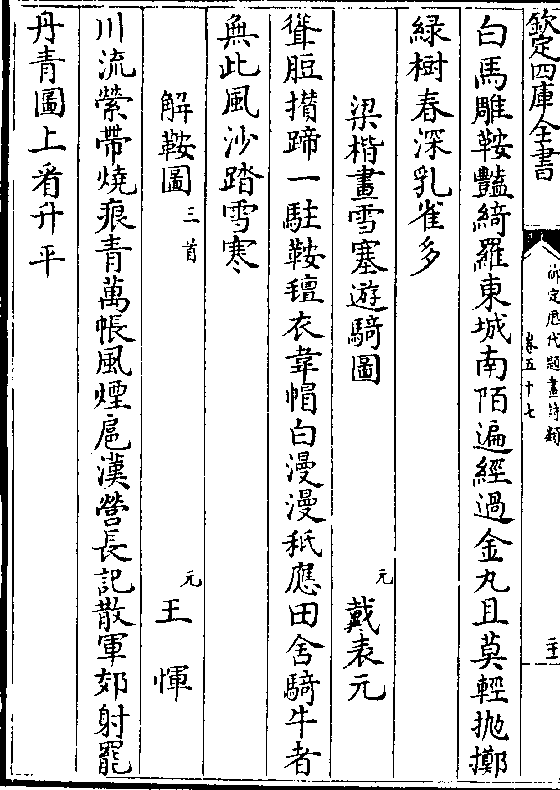 欽定四庫全書
御定歷代題畫詩類
卷五十七
白馬雕鞍豔綺羅東城南陌遍經過金丸且莫輕抛擲
緑樹春深乳雀多
梁楷畫雪塞遊騎圖
元 戴表元
聳脰攅蹄一駐鞍氊衣韋帽白漫漫秪應田舍騎牛者
無此風沙踏雪寒
解鞍圖 三首
元 王惲
川流縈帶燒痕青萬帳風煙扈漢營長記散軍郊射罷
丹青圖上看升平